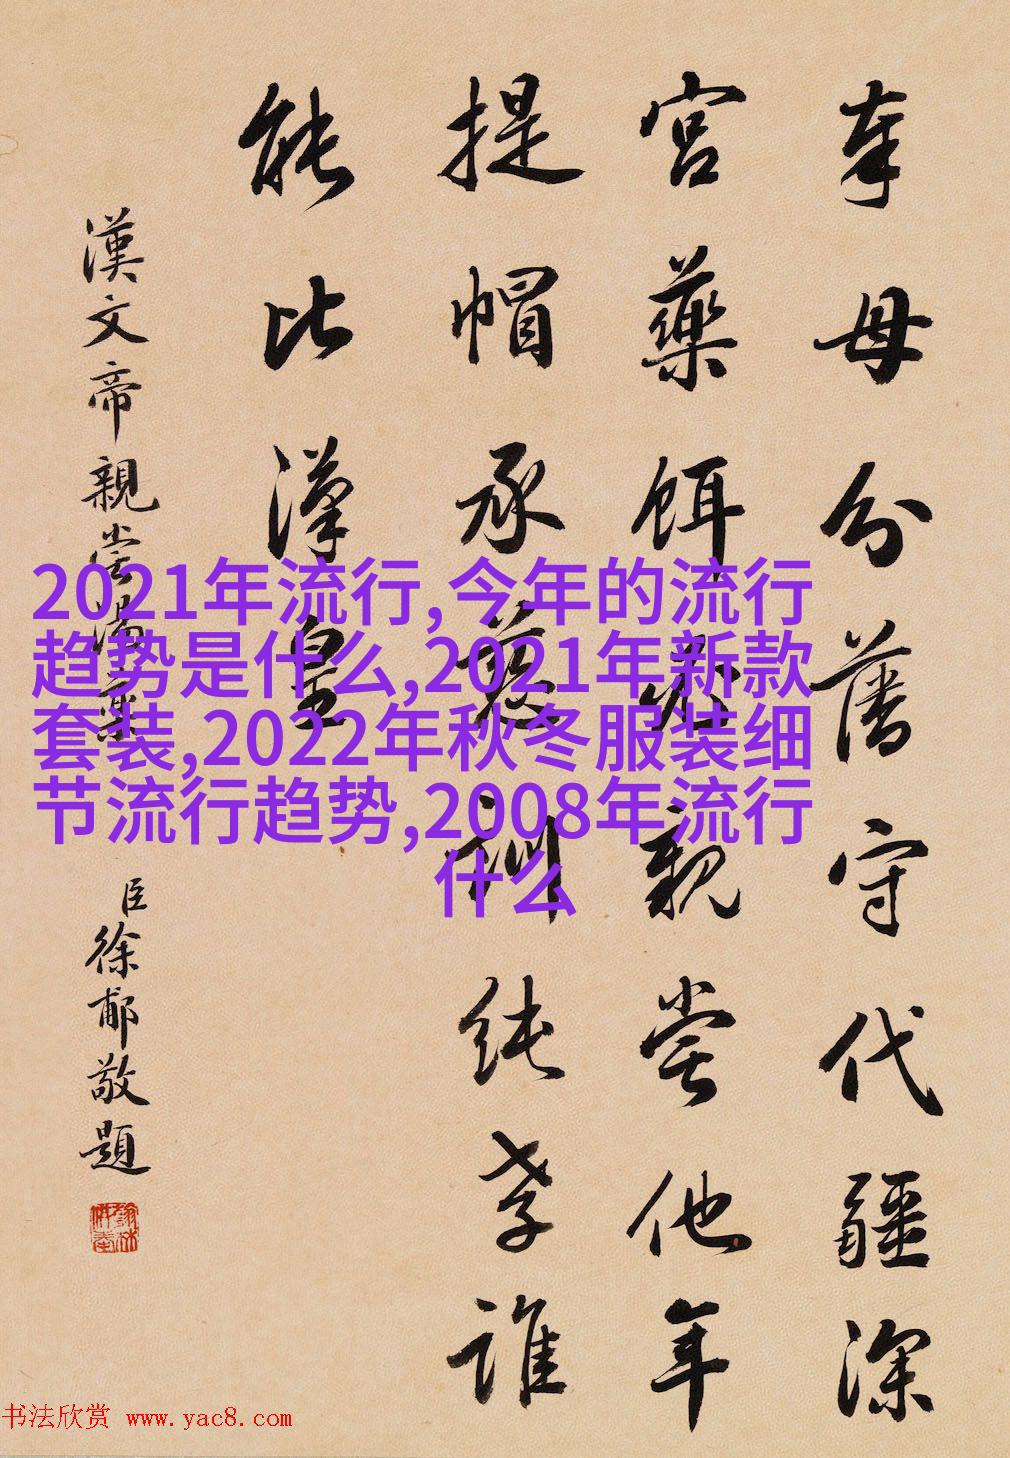 奉母分藩守代疆深
宮藥餌親嘗他年
提帽承慈訓純孝誰
能比漢皇
漢文帝親嘗湯藥
臣徐郙敬題
2021年流行,今年的流行
趋势是什么,2021年新款
套装,2022年秋冬服装细
节流行趋势,2008年流行
什么
书法欣赏 www.yac8.com